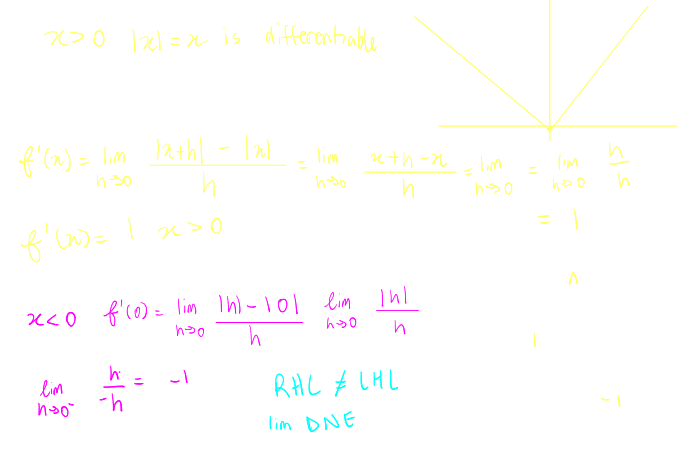 x>0 |x| = x is differentiable
f'(x) = lim h→0 |x+h| - |x| / h = lim h→0 x+h-x / h = lim h→0 = lim h→0 h / h
= 1
f'(x) = 1 x>0
x<0 f'(0) = lim h→0 |h| - |0| / h lim h→0 |h| / h
1
lim h→0⁻ h / -h = -1
RHL ≠ LHL
-1
lim DNE